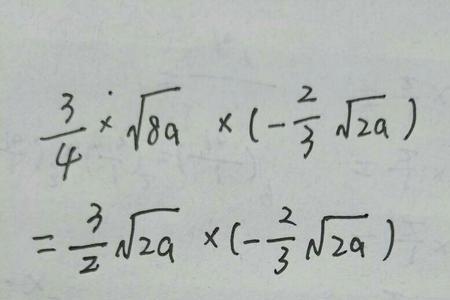 3/4 × √8a × (-2/3 √2a)
= 3/2 √2a × (-2/3 √2a)